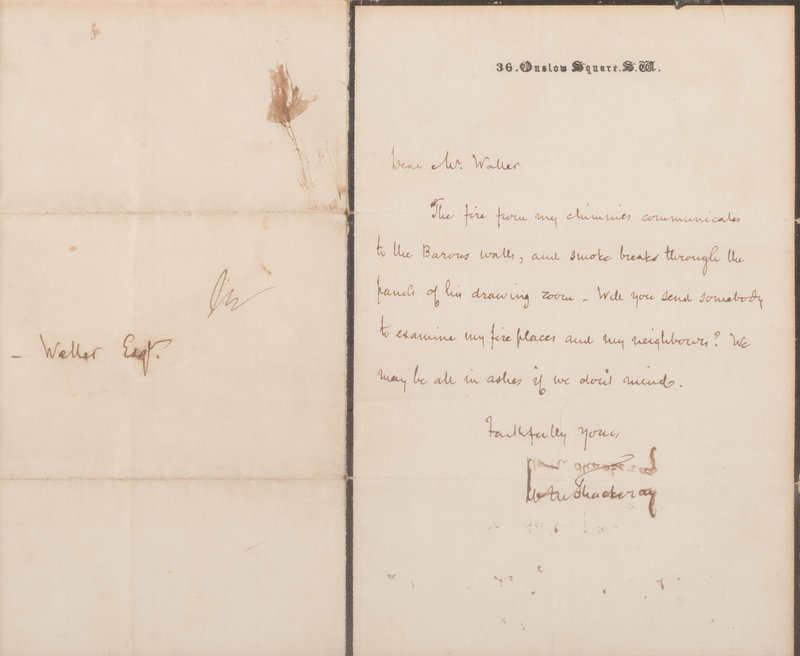 — Waller Esqr.
36. Onslow Square. S.W.
Dear Mr. Waller
The fire from my chimnies communicates
to the Barons walls, and smoke breaks through the
panels of his drawing-room - Will you send somebody
to examine my fire places and my neighbours? We
may be all in ashes if we don't mind.
Faithfully yours
WMThackeray